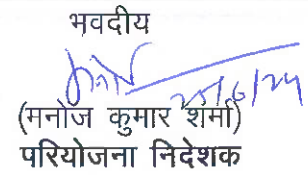 भवदीय
25/6/24
(मनोज कुमार शर्मा)
परियोजना निदेशक